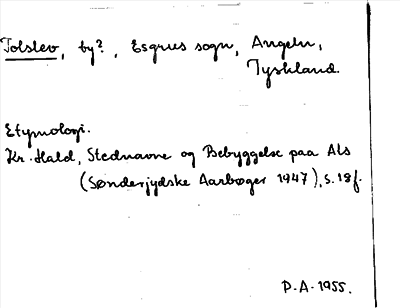 Tolslev, by?, Esgrus sogn, Angeln,
Tyskland.
Etymologi.
Kr. Hald, Stednavne og Bebyggelse paa Als
(Sønderjydske Aarbøger 1947), s. 18f.
P.A. 1955.